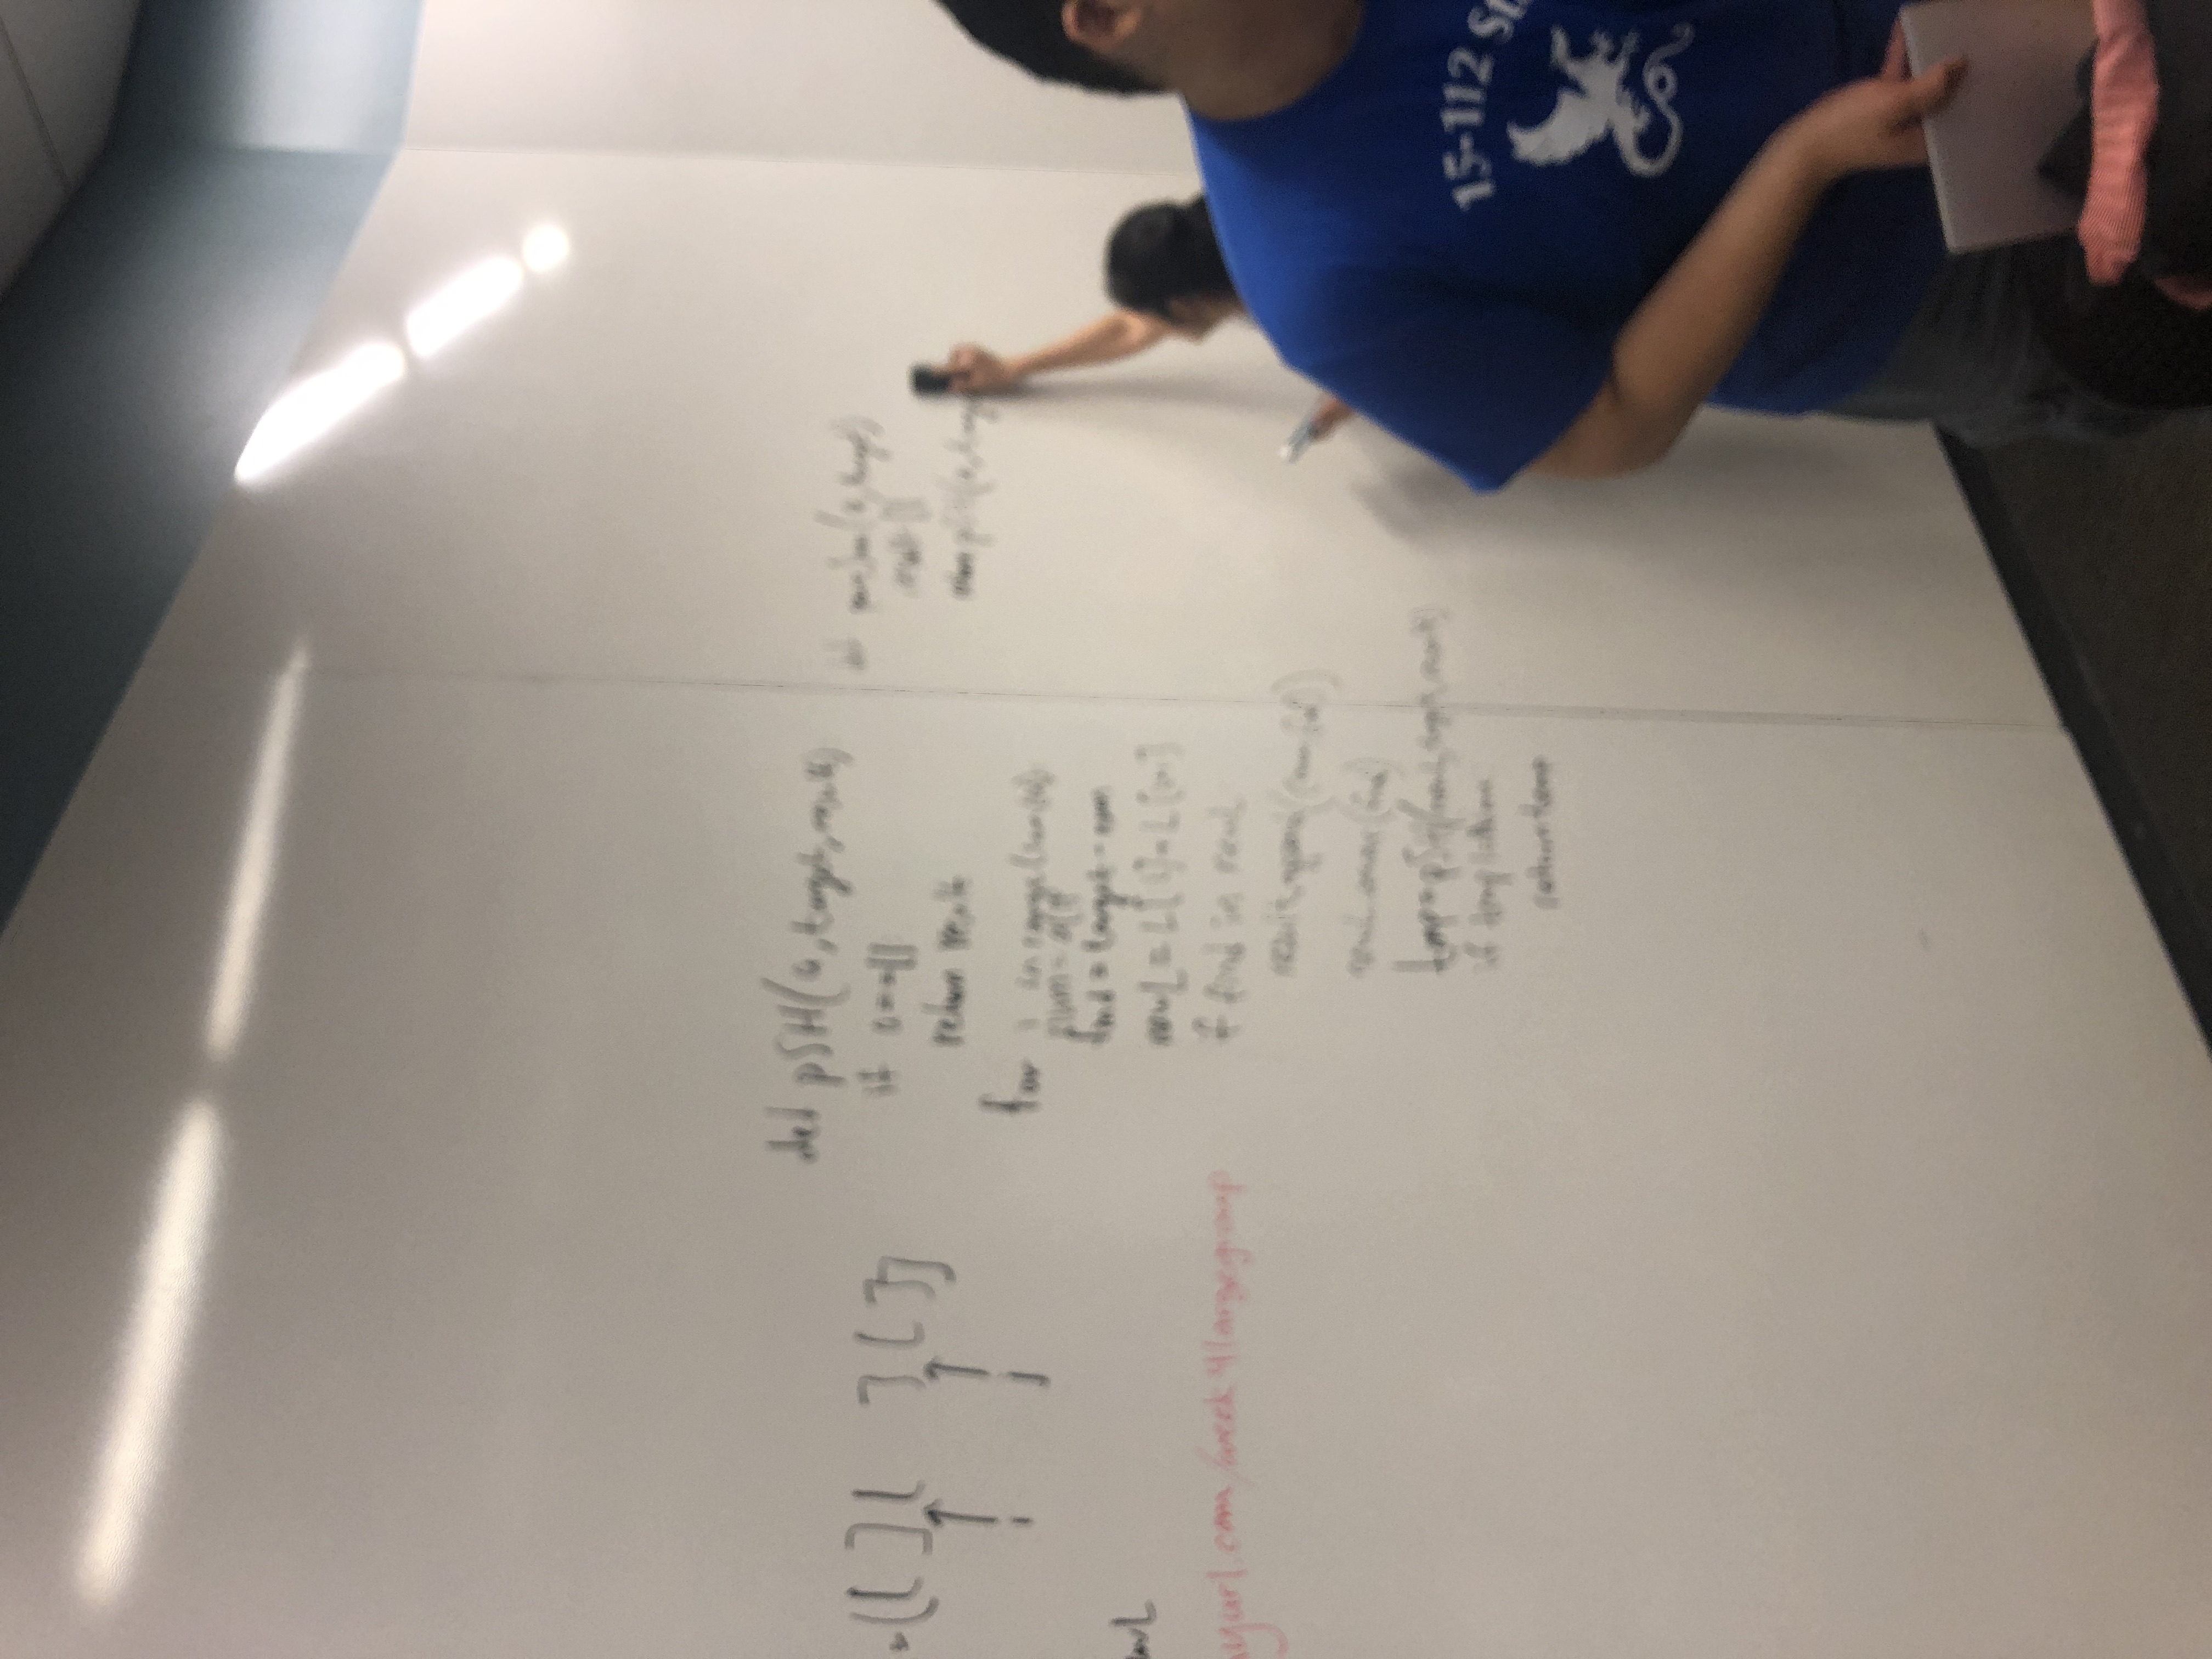 ([ ] [ ] [ ]]
i j
wL
yurl.com/week4largegroup
def pSH(a, target, result)
if a==[]
return result
for i in range(len(a))
num = a[i]
find = target - num
newL = L[:i]+L[i+1:]
if find in newL
result.append((num, find))
newL.remove(find)
tmp = pSH(newL, target, result)
if tmp
return temp
def pairSum(a, target)
result = []
return pSH(a, target
15-112 St